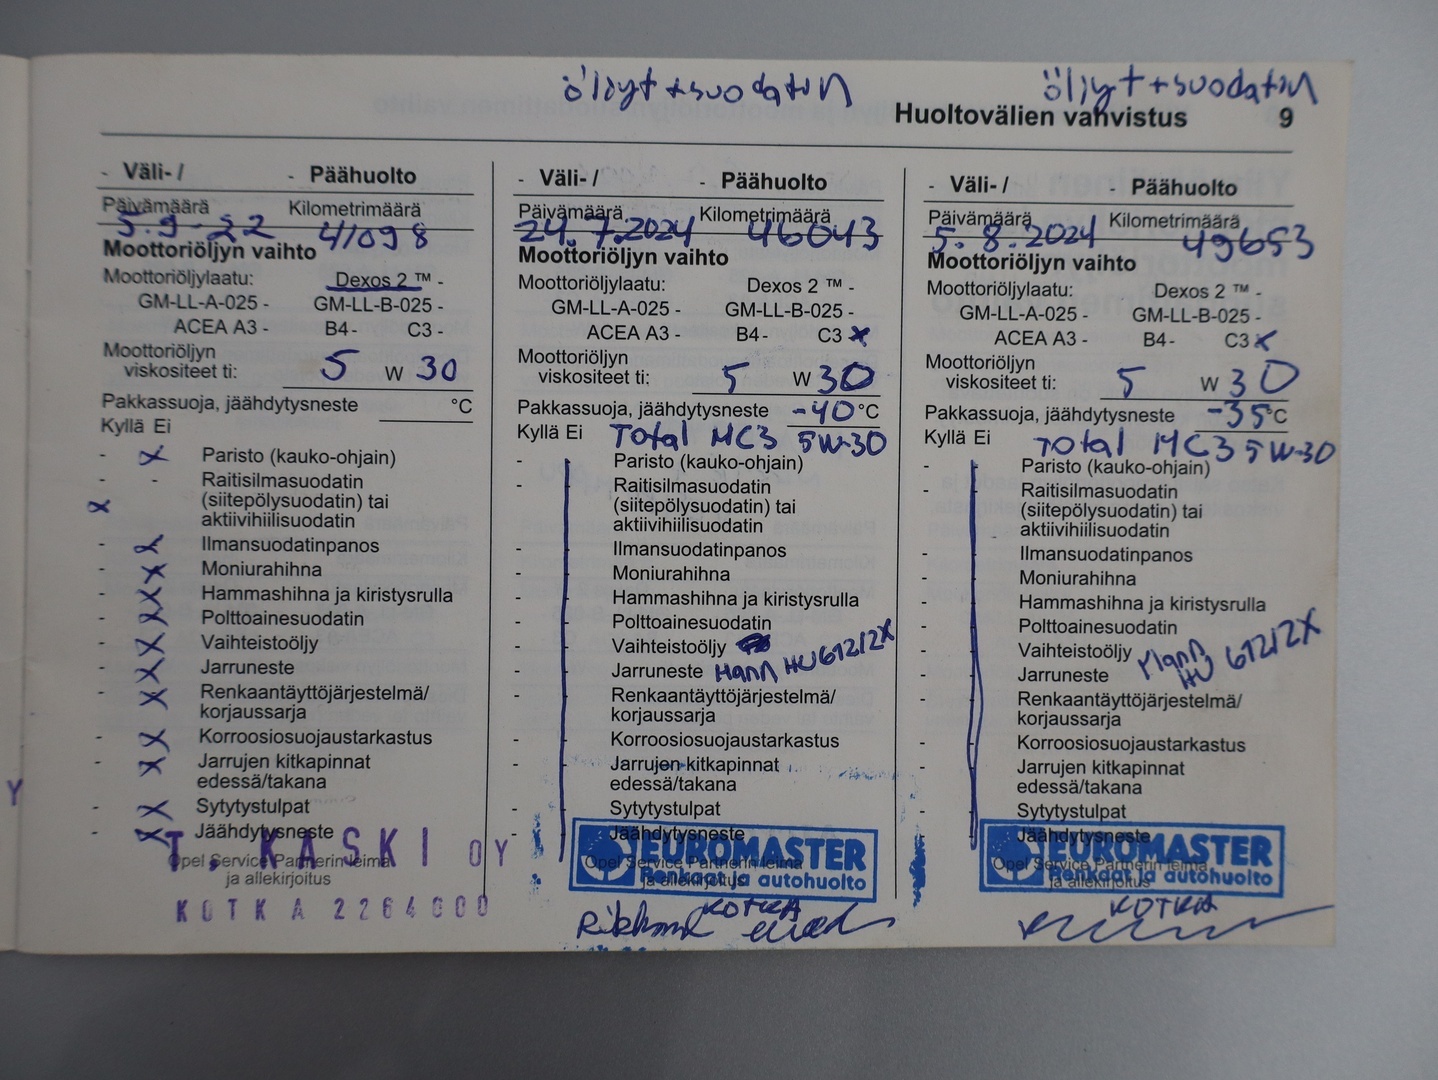 öljyt + suodatin
öljyt + suodatin
Huoltovälien vahvistus 9
- Väli- / - Päähuolto
Päivämäärä Kilometrimäärä
5.9-22 41098
Moottoriöljyn vaihto
Moottoriöljylaatu: Dexos 2 ™ -
GM-LL-A-025 - GM-LL-B-025 -
ACEA A3 - B4 - C3 -
Moottoriöljyn
viskositeet ti: 5 W 30
Pakkassuoja, jäähdytysneste °C
Kyllä Ei
- x Paristo (kauko-ohjain)
- - Raitisilmasuodatin
x (siitepölysuodatin) tai
aktiivihiilisuodatin
- x Ilmansuodatinpanos
- x Moniurahihna
- x Hammashihna ja kiristysrulla
- x Polttoainesuodatin
- x Vaihteistoöljy
- x Jarruneste
- x Renkaantäyttöjärjestelmä/
korjaussarja
- x Korroosiosuojaustarkastus
- x Jarrujen kitkapinnat
edessä/takana
- x Sytytystulpat
- x Jäähdytysneste
T. KASKI OY
Opel Service Partnerin leima
ja allekirjoitus
KOTKA 2264000
- Väli- / - Päähuolto
Päivämäärä Kilometrimäärä
24.7.2024 46043
Moottoriöljyn vaihto
Moottoriöljylaatu: Dexos 2 ™ -
GM-LL-A-025 - GM-LL-B-025 -
ACEA A3 - B4 - C3 x
Moottoriöljyn
viskositeet ti: 5 W 30
Pakkassuoja, jäähdytysneste -40 °C
Kyllä Ei Total MC3 5W-30
- - Paristo (kauko-ohjain)
- - Raitisilmasuodatin
(siitepölysuodatin) tai
aktiivihiilisuodatin
- - Ilmansuodatinpanos
- - Moniurahihna
- - Hammashihna ja kiristysrulla
- - Polttoainesuodatin
- - Vaihteistoöljy
- - Jarruneste Mann HU612/2X
- - Renkaantäyttöjärjestelmä/
korjaussarja
- - Korroosiosuojaustarkastus
- - Jarrujen kitkapinnat
edessä/takana
- - Sytytystulpat
- - Jäähdytysneste
EUROMASTER
Opel Service Partnerin leima
Renkaat ja autohuolto
ja allekirjoitus
KOTKA
- Väli- / - Päähuolto
Päivämäärä Kilometrimäärä
5.8.2024 49653
Moottoriöljyn vaihto
Moottoriöljylaatu: Dexos 2 ™ -
GM-LL-A-025 - GM-LL-B-025 -
ACEA A3 - B4 - C3 x
Moottoriöljyn
viskositeet ti: 5 W 30
Pakkassuoja, jäähdytysneste -35 °C
Kyllä Ei Total MC3 5W-30
- - Paristo (kauko-ohjain)
- - Raitisilmasuodatin
(siitepölysuodatin) tai
aktiivihiilisuodatin
- - Ilmansuodatinpanos
- - Moniurahihna
- - Hammashihna ja kiristysrulla
- - Polttoainesuodatin
- - Vaihteistoöljy
- - Jarruneste Mann HU 612/2X
- - Renkaantäyttöjärjestelmä/
korjaussarja
- - Korroosiosuojaustarkastus
- - Jarrujen kitkapinnat
edessä/takana
- - Sytytystulpat
- - Jäähdytysneste
EUROMASTER
Opel Service Partnerin leima
Renkaat ja autohuolto
ja allekirjoitus
KOTKA